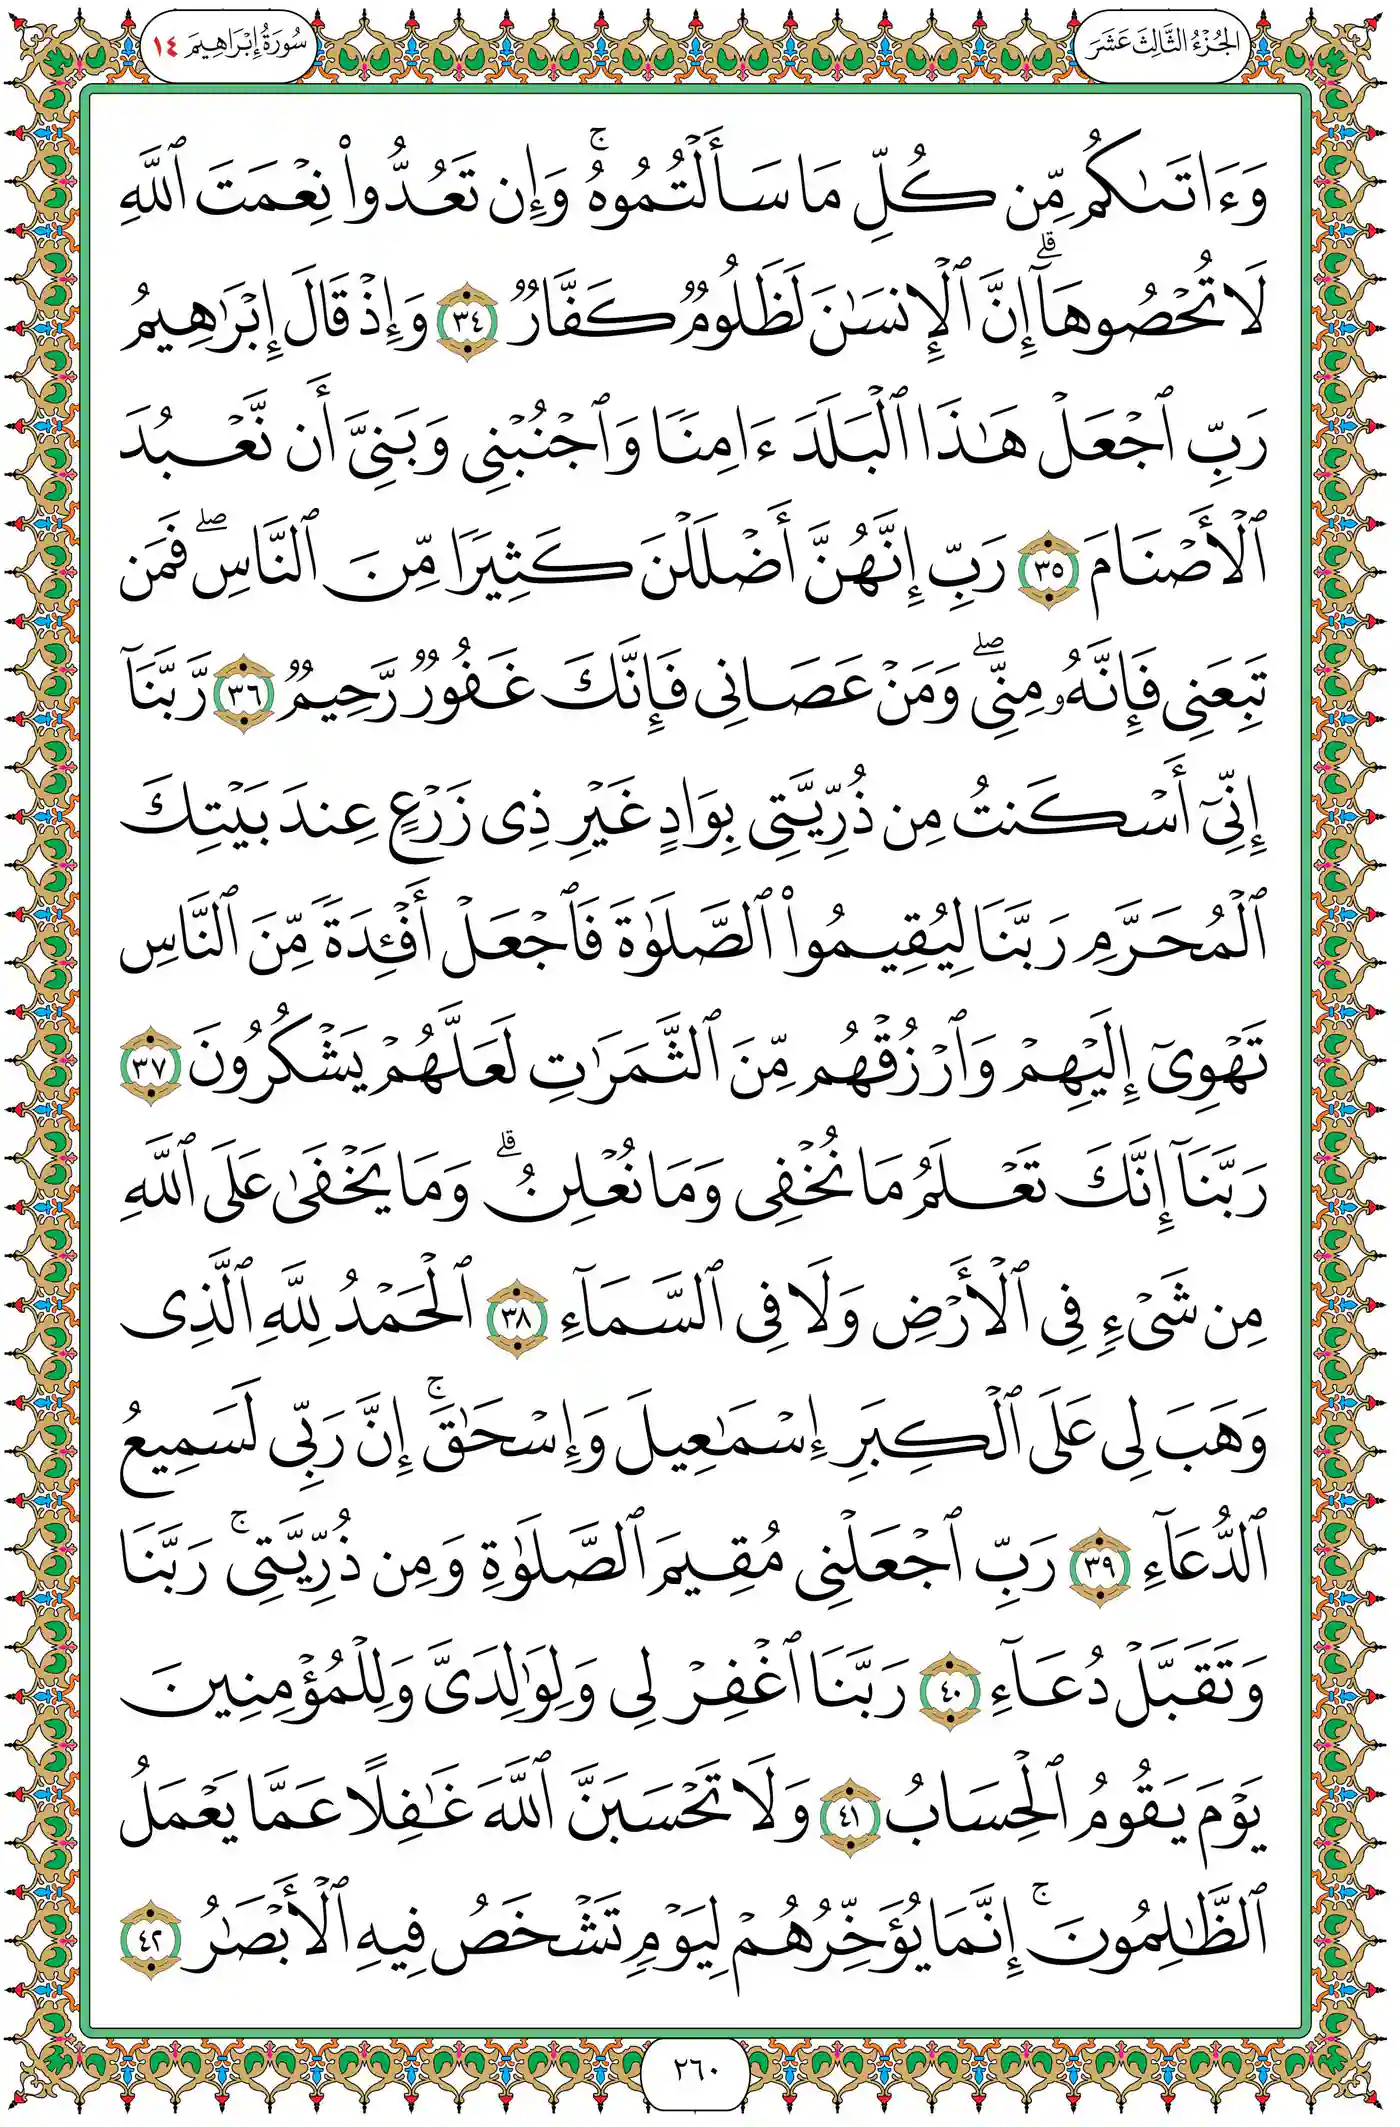 الجُزْءُ الثَّالِثَ عَشَرَ
سُورَةُ إِبْرَاهِيمَ ١٤
وَءَاتَىٰكُم مِّن كُلِّ مَا سَأَلْتُمُوهُۚ وَإِن تَعُدُّوا۟ نِعْمَتَ ٱللَّهِ
لَا تُحْصُوهَآۗ إِنَّ ٱلْإِنسَٰنَ لَظَلُومٌ كَفَّارٌ ٣٤ وَإِذْ قَالَ إِبْرَٰهِيمُ
رَبِّ ٱجْعَلْ هَٰذَا ٱلْبَلَدَ ءَامِنًا وَٱجْنُبْنِى وَبَنِىَّ أَن نَّعْبُدَ
ٱلْأَصْنَامَ ٣٥ رَبِّ إِنَّهُنَّ أَضْلَلْنَ كَثِيرًا مِّنَ ٱلنَّاسِۖ فَمَن
تَبِعَنِى فَإِنَّهُۥ مِنِّىۖ وَمَنْ عَصَانِى فَإِنَّكَ غَفُورٌ رَّحِيمٌ ٣٦ رَّبَّنَآ
إِنِّىٓ أَسْكَنتُ مِن ذُرِّيَّتِى بِوَادٍ غَيْرِ ذِى زَرْعٍ عِندَ بَيْتِكَ
ٱلْمُحَرَّمِ رَبَّنَا لِيُقِيمُوا۟ ٱلصَّلَوٰةَ فَٱجْعَلْ أَفْـِٔدَةً مِّنَ ٱلنَّاسِ
تَهْوِىٓ إِلَيْهِمْ وَٱرْزُقْهُم مِّنَ ٱلثَّمَرَٰتِ لَعَلَّهُمْ يَشْكُرُونَ ٣٧
رَبَّنَآ إِنَّكَ تَعْلَمُ مَا نُخْفِى وَمَا نُعْلِنُۗ وَمَا يَخْفَىٰ عَلَى ٱللَّهِ
مِن شَىْءٍ فِى ٱلْأَرْضِ وَلَا فِى ٱلسَّمَآءِ ٣٨ ٱلْحَمْدُ لِلَّهِ ٱلَّذِى
وَهَبَ لِى عَلَى ٱلْكِبَرِ إِسْمَٰعِيلَ وَإِسْحَٰقَۚ إِنَّ رَبِّى لَسَمِيعُ
ٱلدُّعَآءِ ٣٩ رَبِّ ٱجْعَلْنِى مُقِيمَ ٱلصَّلَوٰةِ وَمِن ذُرِّيَّتِىۚ رَبَّنَا
وَتَقَبَّلْ دُعَآءِ ٤٠ رَبَّنَا ٱغْفِرْ لِى وَلِوَٰلِدَىَّ وَلِلْمُؤْمِنِينَ
يَوْمَ يَقُومُ ٱلْحِسَابُ ٤١ وَلَا تَحْسَبَنَّ ٱللَّهَ غَٰفِلًا عَمَّا يَعْمَلُ
ٱلظَّٰلِمُونَۚ إِنَّمَا يُؤَخِّرُهُمْ لِيَوْمٍ تَشْخَصُ فِيهِ ٱلْأَبْصَٰرُ ٤٢
٢٦٠